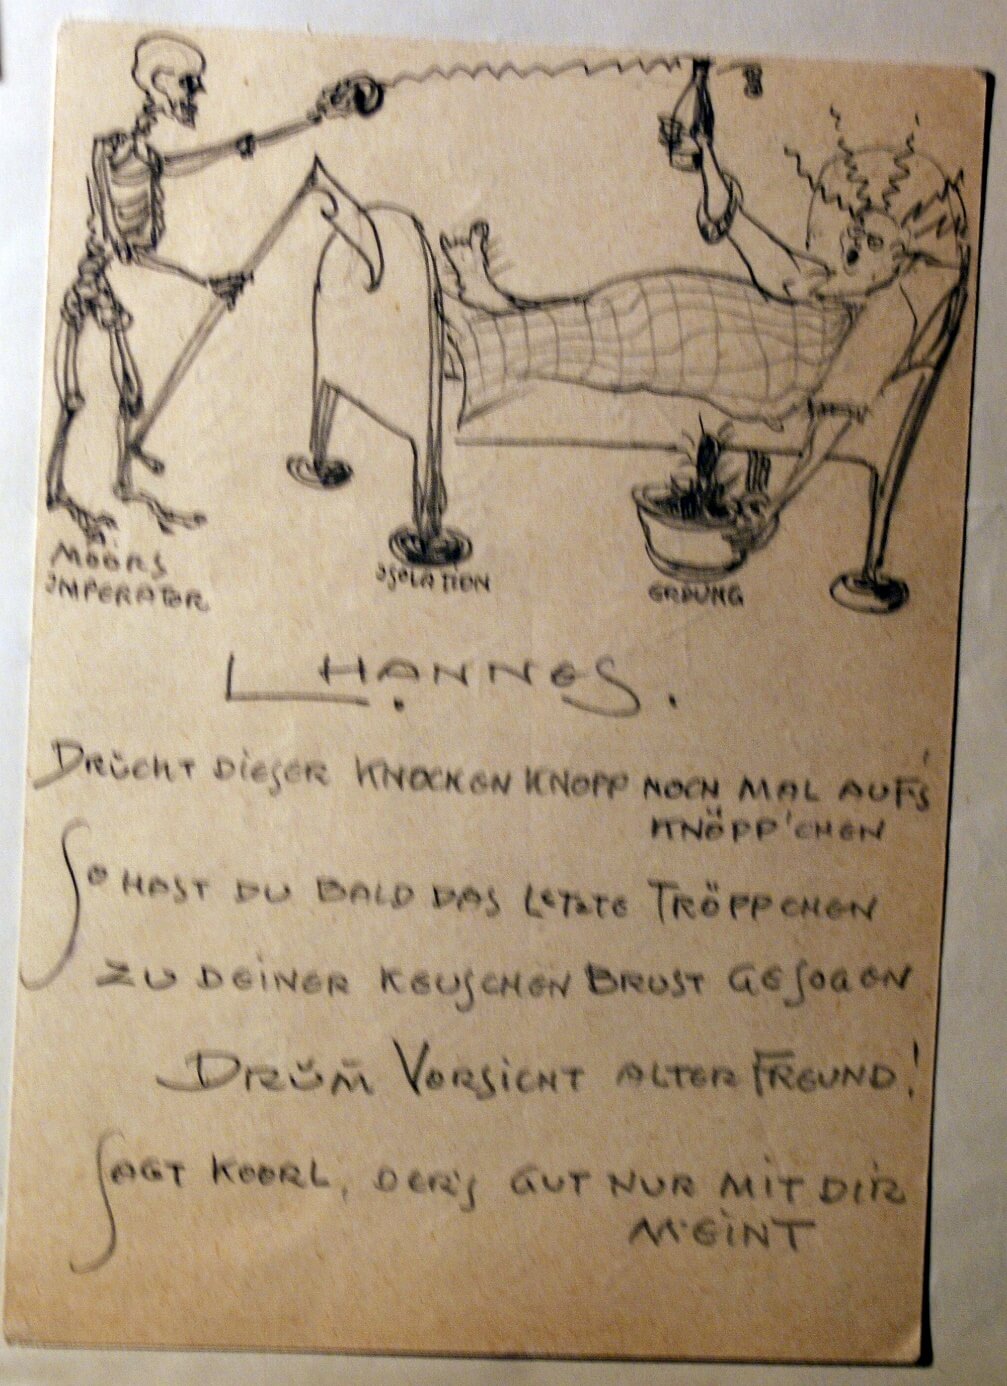 MOORS
IMPERATOR
ISOLATION
ERDUNG
L HANNES.
DRÜCKT DIESER KNOCKEN KNOPP NOCH MAL AUF'S
KNÖPP'CHEN
SO HAST DU BALD DAS LETZTE TRÖPPCHEN
ZU DEINER KEUSCHEN BRUST GESOGEN
DRÜM VORSICHT ALTER FREUND!
SAGT KOORL, DER'S GUT NUR MIT DIR
MEINT